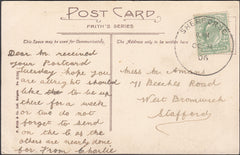 POST CARD
FRITH'S SERIES
This Space may be used for Communication.
The Address only to be written here.
Dear M. received
your Postcard
Tuesday hope you
are allright should
like to be up
there for a week
or two do not
forget to send
on the 6 as the
others are nearly done
for From Charlie
Miss M. Amant
71 Beeches Road
West Bromwich
Stafford